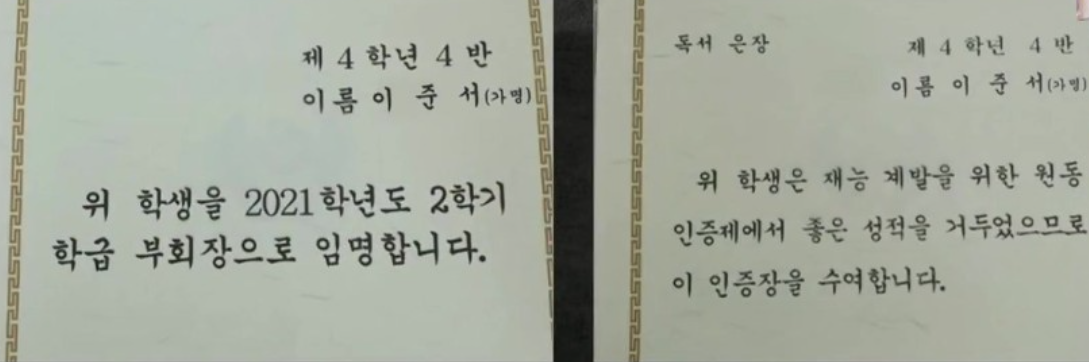 제 4 학년 4 반
이름 이 준 서(가명)
위 학생을 2021학년도 2학기
학급 부회장으로 임명합니다.
독서 은장
제 4 학년 4 반
이름 이 준 서(가명)
위 학생은 재능 계발을 위한 원동
인증제에서 좋은 성적을 거두었으므로
이 인증장을 수여합니다.